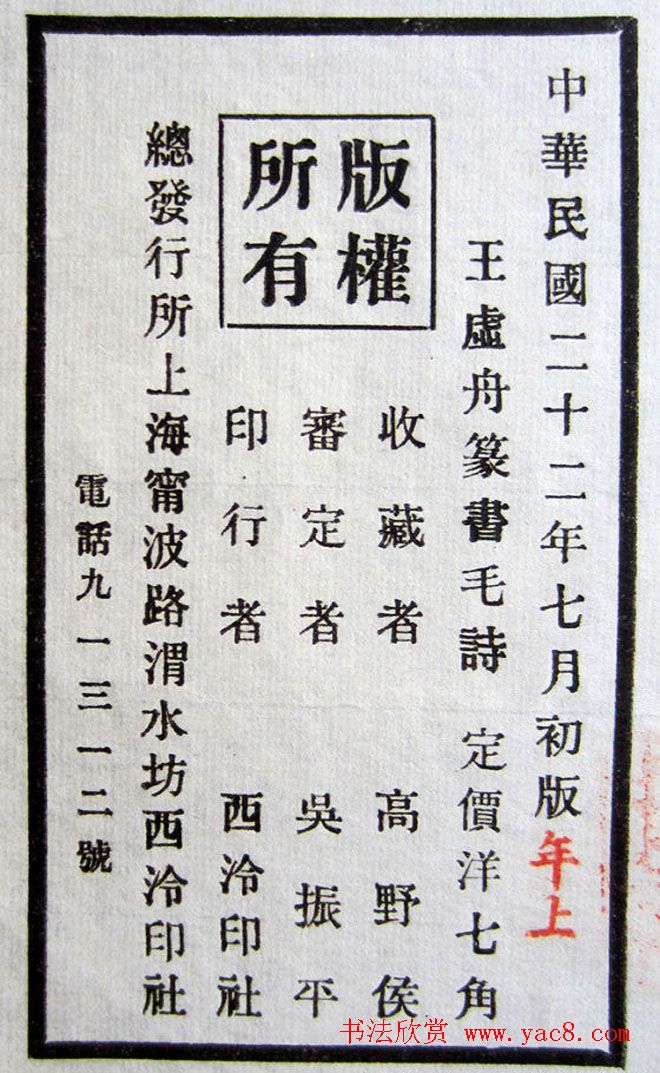 中華民國二十二年七月初版
年上
王虛舟篆書毛詩 定價洋七角
版權所有
收藏者 高野侯
審定者 吳振平
印行者 西泠印社
總發行所上海甯波路渭水坊西泠印社
電話九一三一二號
书法欣赏 www.yac8.com